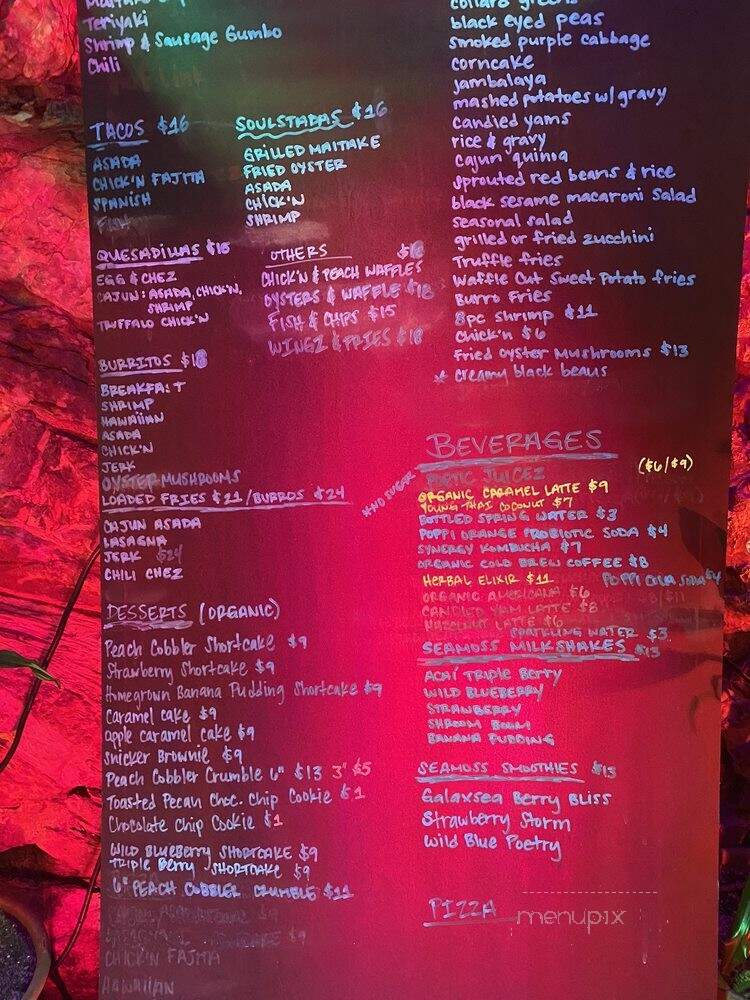 Teriyaki
Shrimp & Sausage Gumbo
Chili
TACOS $16
ASADA
CHICK'N FAJITA
SPANISH
SOULSTADAS $16
GRILLED MAITAKE
FRIED OYSTER
ASADA
CHICK'N
SHRIMP
QUESADILLAS
EGG & CHEZ
CAJUN: ASADA, CHICK'N,
SHRIMP
TRUFFALO CHICK'N
OTHERS
CHICK'N & PEACH WAFFLES
OYSTERS & WAFFLE $18
FISH & CHIPS $15
WINGZ & FRIES $18
BURRITOS
BREAKFA:T
SHRIMP
HAWAIIAN
ASADA
CHICK'N
JERK
OYSTER MUSHROOMS
LOADED FRIES $21/BURROS $24
CAJUN ASADA
LASAGNA
JERK $24
CHILI CHEZ
DESSERTS (ORGANIC)
Peach Cobbler Shortcake $9
Strawberry Shortcake $9
Homegrown Banana Pudding Shortcake $9
Caramel cake $9
apple caramel cake $9
Snicker Brownie $9
Peach Cobbler Crumble 6" $13 3" $5
Toasted Pecan Choc. Chip Cookie $1
Chocolate Chip Cookie $1
WILD BLUEBERRY SHORTCAKE $9
TRIPLE BERRY SHORTCAKE $9
6" PEACH COBBLER CRUMBLE $11
CHICK'N FAJITA
HAWAIIAN
collard greens
black eyed peas
smoked purple cabbage
corncake
jambalaya
mashed potatoes w/ gravy
candied yams
rice & gravy
cajun quinoa
sprouted red beans & rice
black sesame macaroni salad
seasonal salad
grilled or fried zucchini
Truffle fries
Waffle Cut Sweet Potato fries
Burro Fries
8pc shrimp $11
Chick'n $6
Fried oyster Mushrooms $13
* creamy black beans
BEVERAGES
POETIC JUICEZ ($6/$9)
*NO SUGAR
ORGANIC CARAMEL LATTE $9
YOUNG THAI COCONUT $7
BOTTLED SPRING WATER $3
POPPI ORANGE PROBIOTIC SODA $4
SYNERGY KOMBUCHA $7
ORGANIC COLD BREW COFFEE $8
HERBAL ELIXIR $11
POPPI COLA SODA $4
ORGANIC AMERICANA $6
CANDIED YAM LATTE $8
HAZELNUT LATTE $6
SPARKLING WATER $3
SEAMOSS MILKSHAKES $13
ACAÍ TRIPLE BERRY
WILD BLUEBERRY
STRAWBERRY
SHROOM BOOM
BANANA PUDDING
SEAMOSS SMOOTHIES $13
Galaxsea Berry BLISS
Strawberry Storm
Wild Blue Poetry
PIZZA
menupix